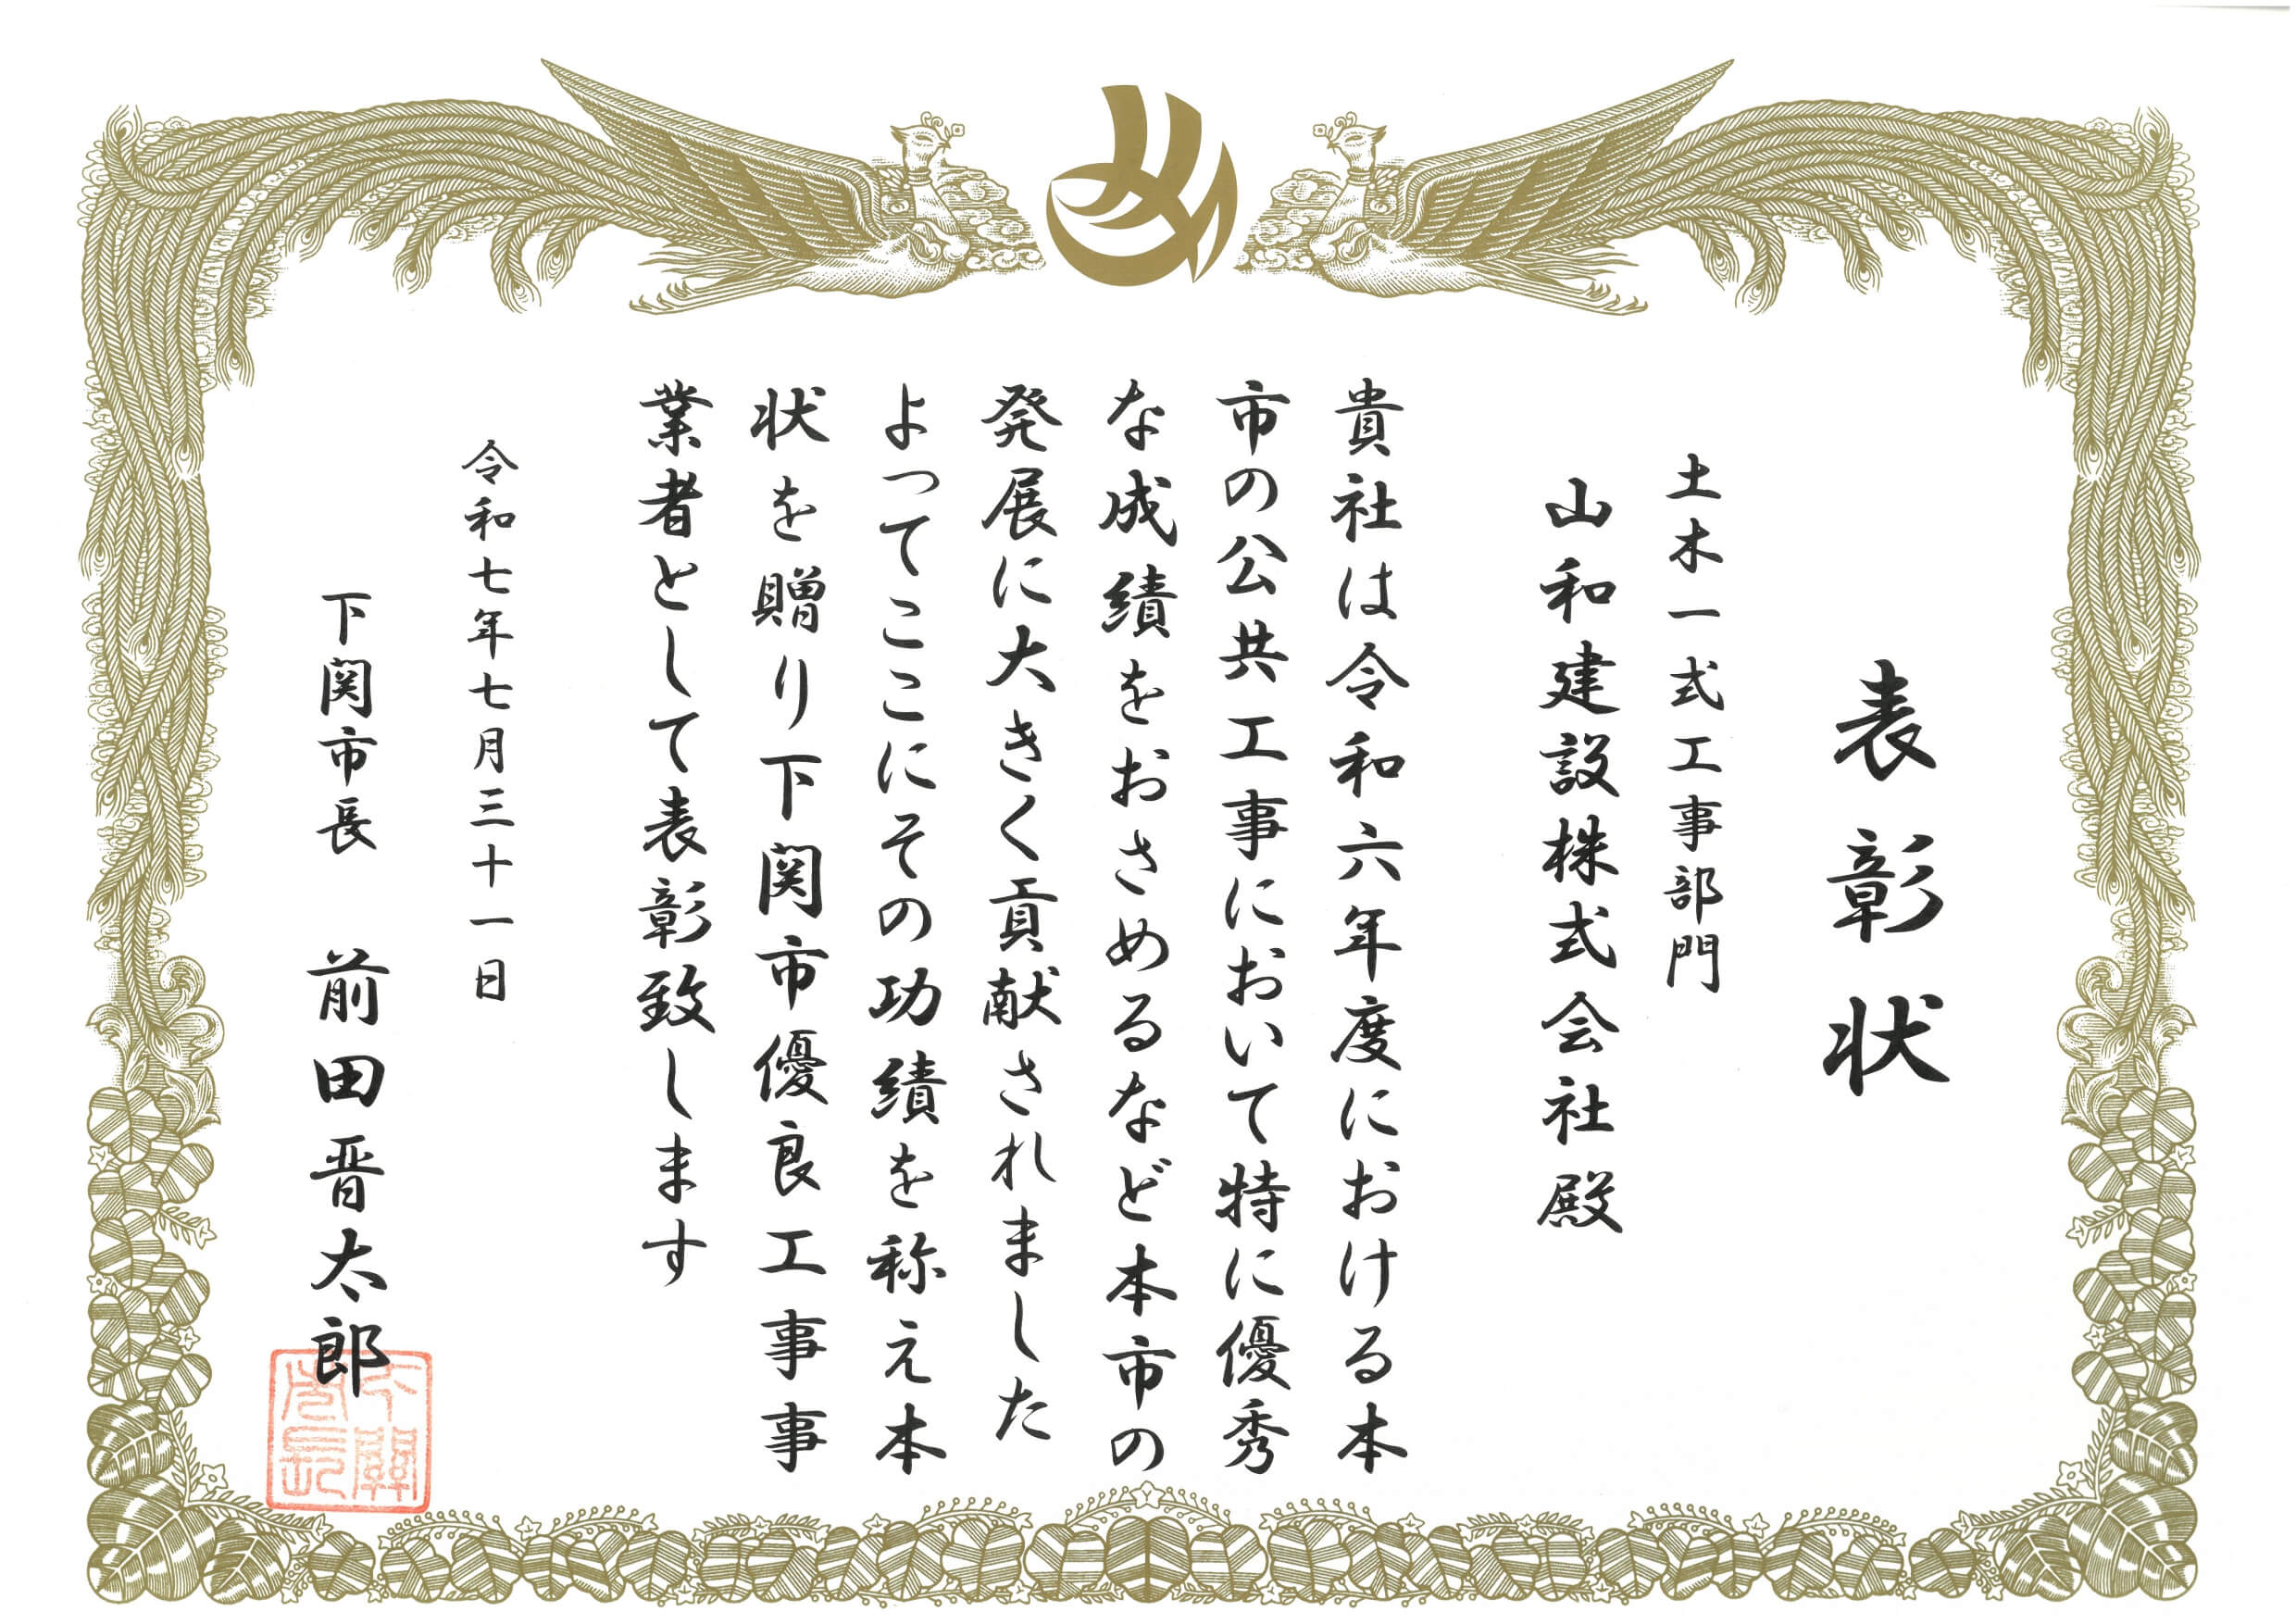 表彰状
土木一式工事部門
山和建設株式会社殿
貴社は令和六年度における本
市の公共工事において特に優秀
な成績をおさめるなど本市の
発展に大きく貢献されました
よってここにその功績を称え本
状を贈り下関市優良工事事
業者として表彰致します
令和七年七月三十一日
下関市長 前田晋太郎
下關
市長